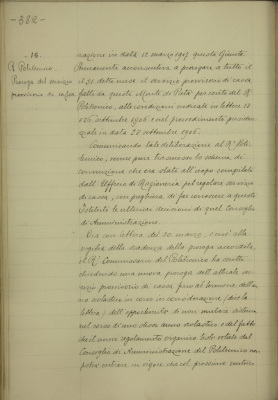 -382-
-16.
R. Politecnico.
Proroga del servizio
provvisorio di cassa.
nazione in data 12 marzo 1907 questa Giunta
Permanente acconsentiva a prorogare a tutto il
31 detto mese il servizio provvisorio di cassa
fatto da questo Monte di Pietà per conto del R.
Politecnico, alle condizioni indicate in lettera 13
settembre 1906 e nel provvedimento presiden-
ziale in data 28 settembre 1906.
Comunicando tale deliberazione al R. Poli-
tecnico, venne pure trasmesso lo schema di
convenzione che era stato all'uopo compilato
dall'Ufficio di Ragioneria pel regolare servizio
di cassa, con preghiera di far conoscere a questo
Istituto le ulteriori decisioni di quel Consiglio
di Amministrazione.
Ora con lettera del 30 marzo, cioè alla
vigilia della scadenza della proroga accordata,
il R. Commissario del Politecnico ha scritto
chiedendo una nuova proroga dell'attuale ser-
vizio provvisorio di cassa fino al termine dell'an-
no scolastico in corso in considerazione (dice la
lettera) dell'opportunità di non mutare sistema
nel corso di uno stesso anno scolastico e del fatto
che il nuovo regolamento organico testé votato dal
Consiglio di Amministrazione del Politecnico non
potrà entrare in vigore che col prossimo eserci-